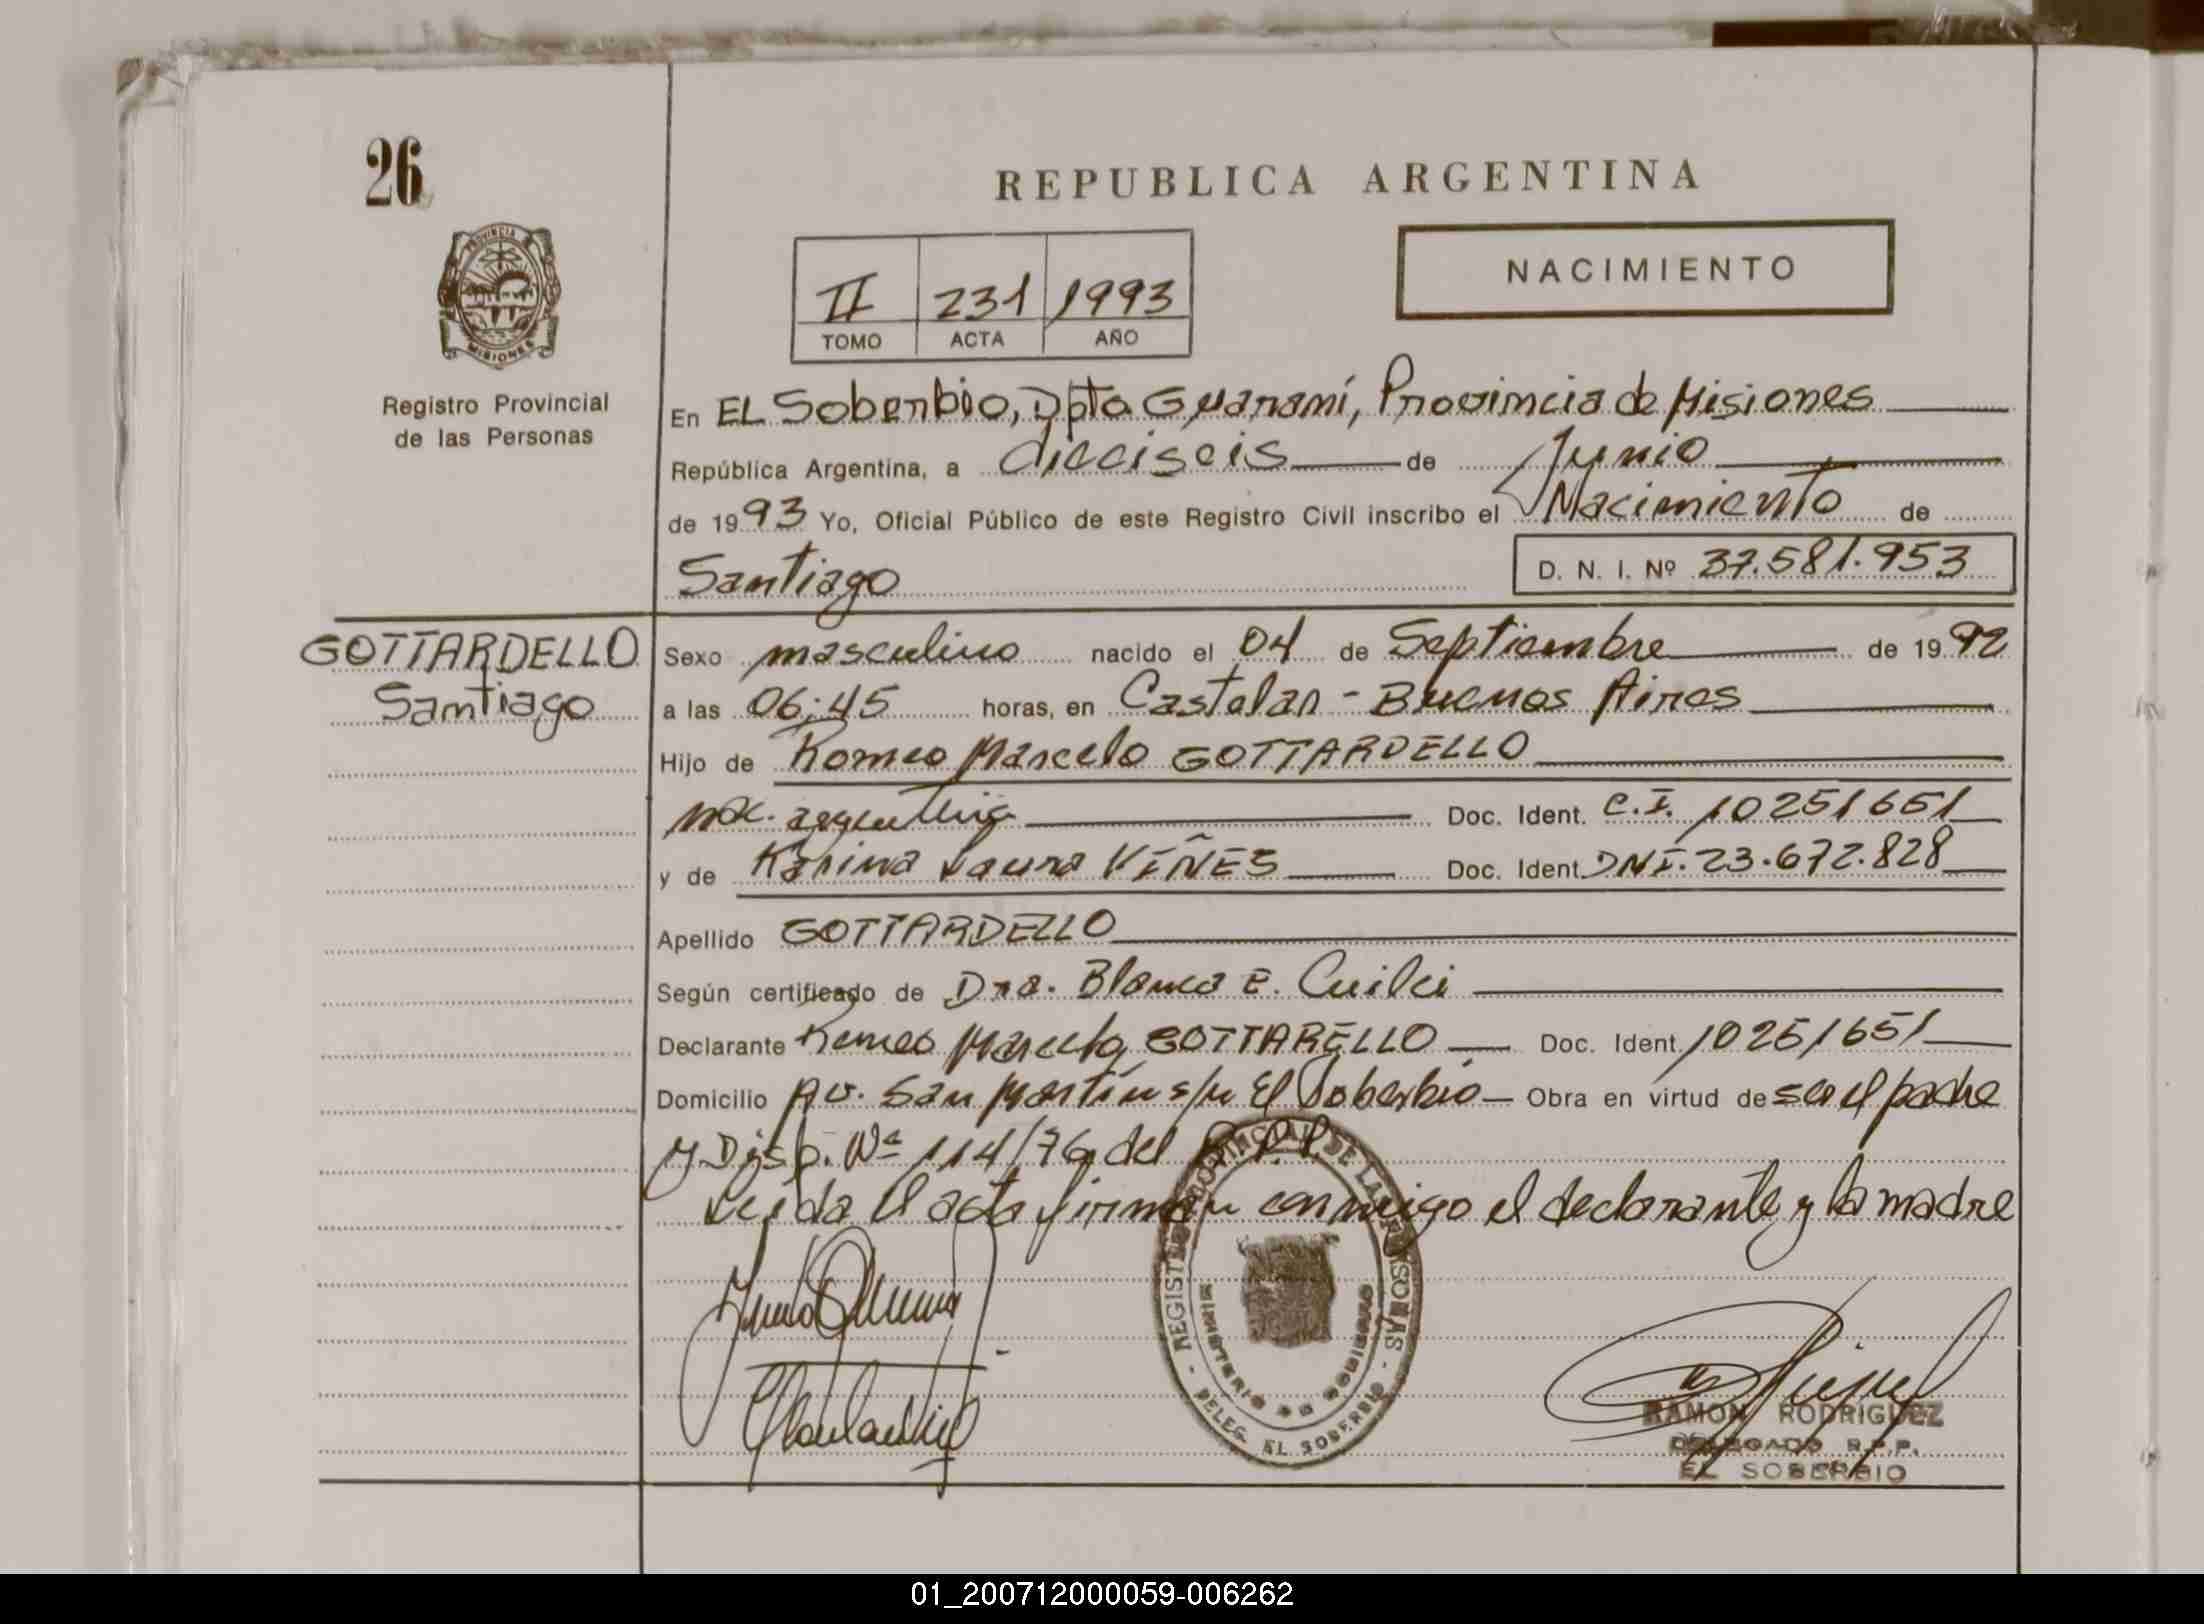 26
REPUBLICA ARGENTINA
PROVINCIA DE
MISIONES
Registro Provincial
de las Personas
II 231 1993
TOMO ACTA AÑO
NACIMIENTO
En EL Soberbio, Dpto Guaraní, Provincia de Misiones
República Argentina, a dieciseis de Junio
de 1993 Yo, Oficial Público de este Registro Civil inscribo el Nacimiento de
Santiago D. N. I. Nº 37.581.953
GOTTARDELLO
Santiago
Sexo masculino nacido el 04 de Septiembre de 1992
a las 06:45 horas, en Castelar - Buenos Aires
Hijo de Romeo Marcelo GOTTARDELLO
nac. argentina Doc. Ident. C.I. 10251651
y de Karina Laura VIÑES Doc. Ident. DNI. 23.672.828
Apellido GOTTARDELLO
Según certificado de Dra. Blanca E.
Declarante Romeo Marcelo GOTTARELLO Doc. Ident. 10251651
Domicilio Av. San Martín s/n El Soberbio Obra en virtud de ser el padre
y Disp. Nº 114/76 del R.P.P.
Leída el acta firman conmigo el declarante y la madre
- REGISTRO PROVINCIAL DE LAS PERSONAS -
MINISTERIO DE GOBIERNO
DELEG. EL SOBERBIO
RAMON RODRIGUEZ
DELEGADO R.P.P.
EL SOBERBIO
01_200712000059-006262